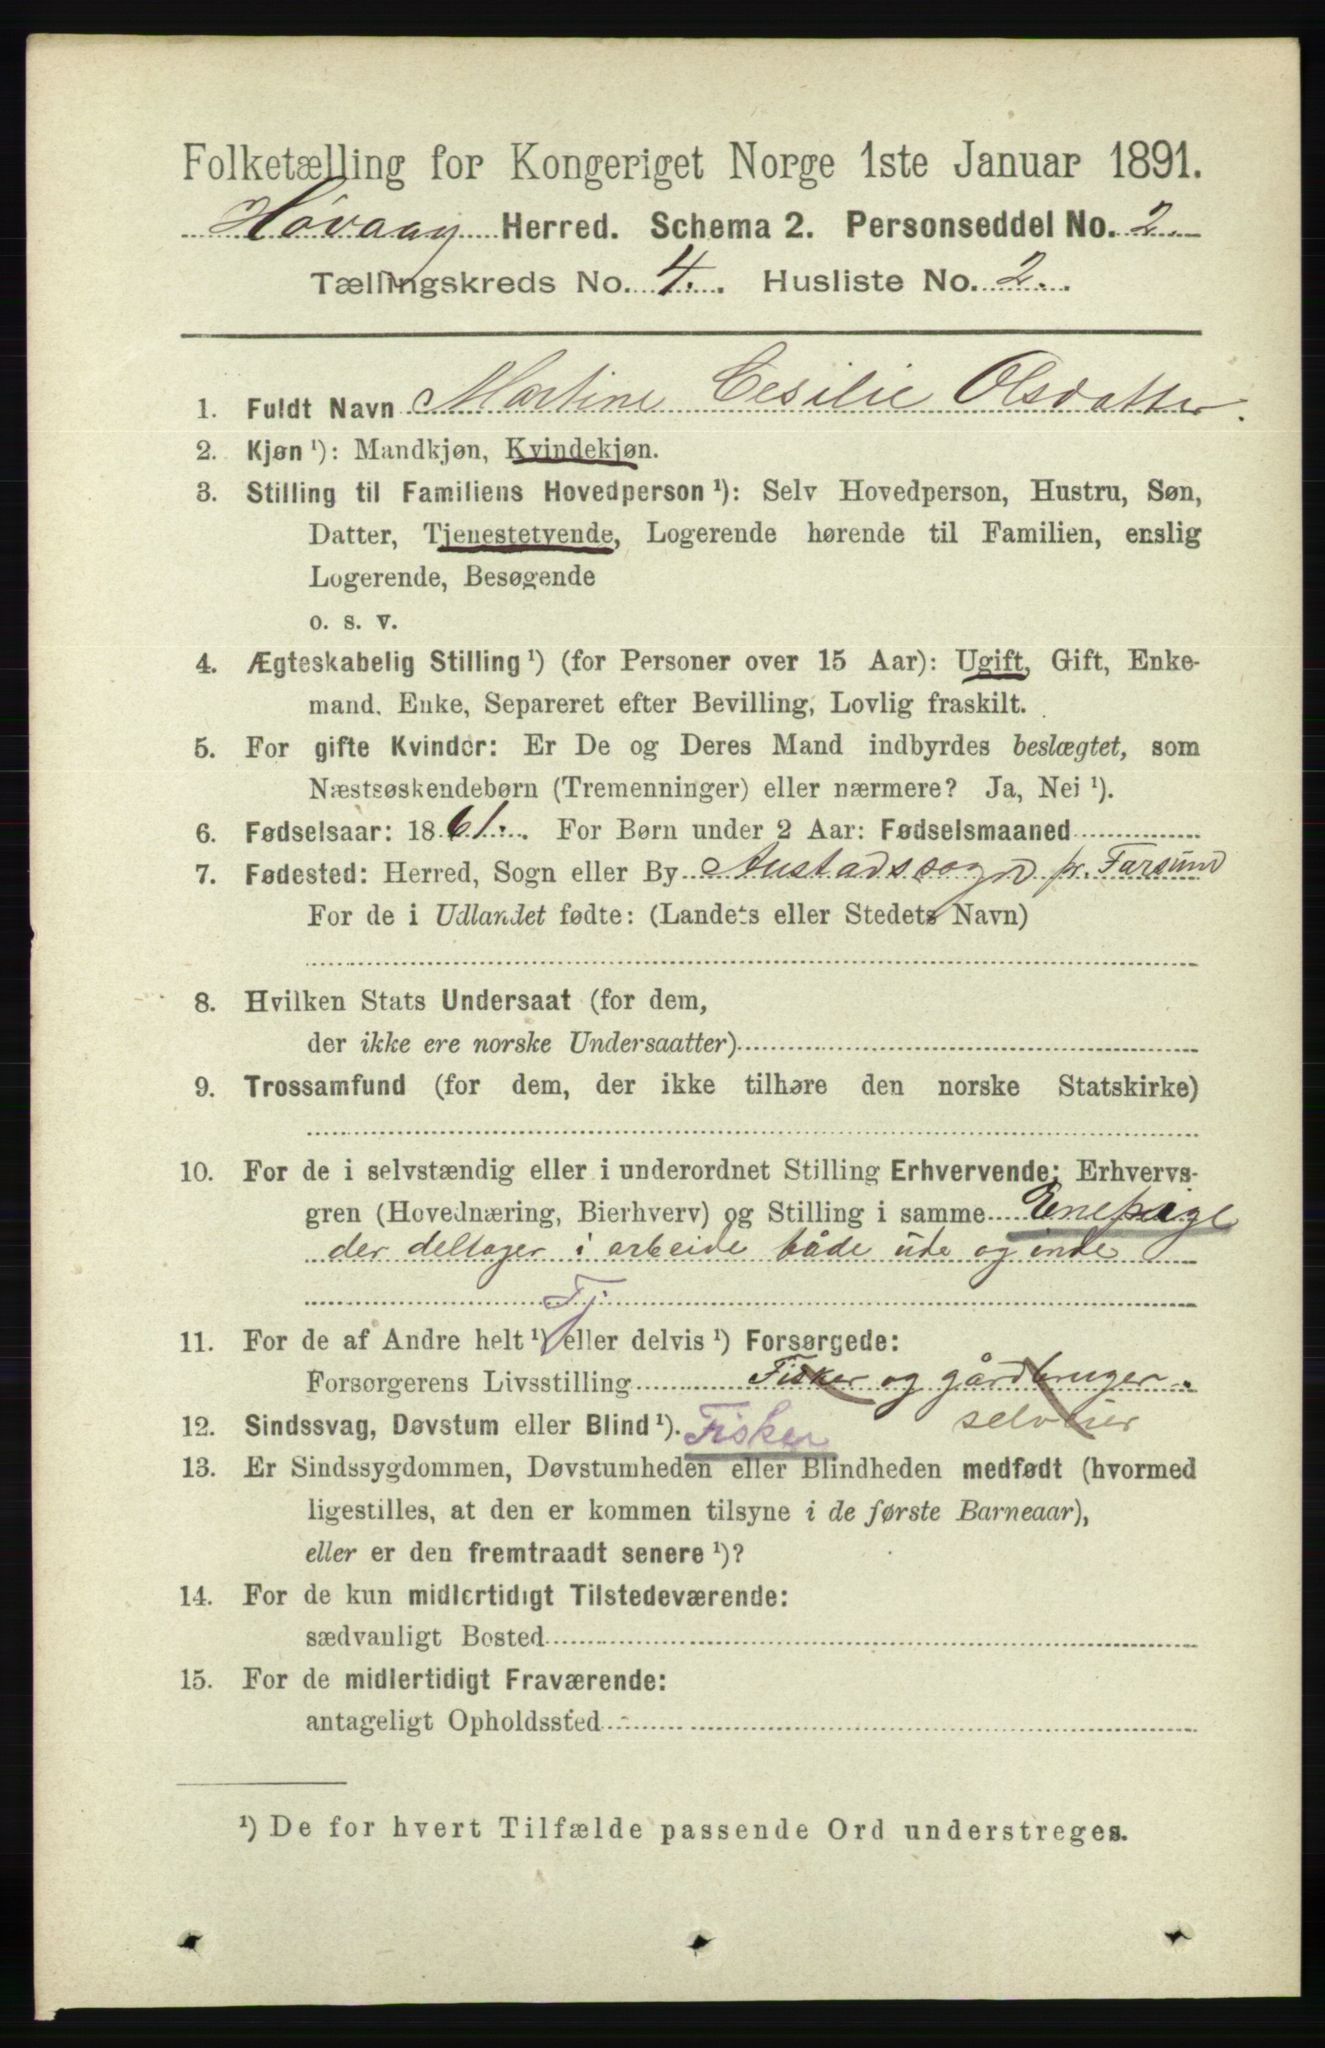 Folketælling for Kongeriget Norge 1ste Januar 1891.
Høvaag Herred. Schema 2. Personseddel No. 2.
Tællingskreds No. 4. Husliste No. 2.
1. Fuldt Navn Martine Cesilie Olsdatter.
2. Kjøn ¹): Mandkjøn, Kvindekjøn.
3. Stilling til Familiens Hovedperson ¹): Selv Hovedperson, Hustru, Søn,
Datter, Tjenestetyende, Logerende hørende til Familien, enslig
Logerende, Besøgende
o. s. v.
4. Ægteskabelig Stilling ¹) (for Personer over 15 Aar): Ugift, Gift, Enke-
mand, Enke, Separeret efter Bevilling, Lovlig fraskilt.
5. For gifte Kvinder: Er De og Deres Mand indbyrdes beslægtet, som
Næstsøskendebørn (Tremenninger) eller nærmere? Ja, Nei ¹).
6. Fødselsaar: 1861. For Børn under 2 Aar: Fødselsmaaned
7. Fødested: Herred, Sogn eller By Austadsogn pr. Farsund
For de i Udlandet fødte: (Landets eller Stedets Navn)
8. Hvilken Stats Undersaat (for dem,
der ikke ere norske Undersaatter)
9. Trossamfund (for dem, der ikke tilhøre den norske Statskirke)
10. For de i selvstændig eller i underordnet Stilling Erhvervende: Erhvervs-
gren (Hovednæring, Bierhverv) og Stilling i samme Enepige
der deltager i arbeide både ude og inde
Tj
11. For de af Andre helt ¹) eller delvis ¹) Forsørgede:
Forsørgerens Livsstilling Fisker og gårdbruger
12. Sindssvag, Døvstum eller Blind ¹). Fisker selveier
13. Er Sindssygdommen, Døvstumheden eller Blindheden medfødt (hvormed
ligestilles, at den er kommen tilsyne i de første Barneaar),
eller er den fremtraadt senere ¹)?
14. For de kun midlertidigt Tilstedeværende:
sædvanligt Bosted
15. For de midlertidigt Fraværende:
antageligt Opholdssted
¹) De for hvert Tilfælde passende Ord understreges.